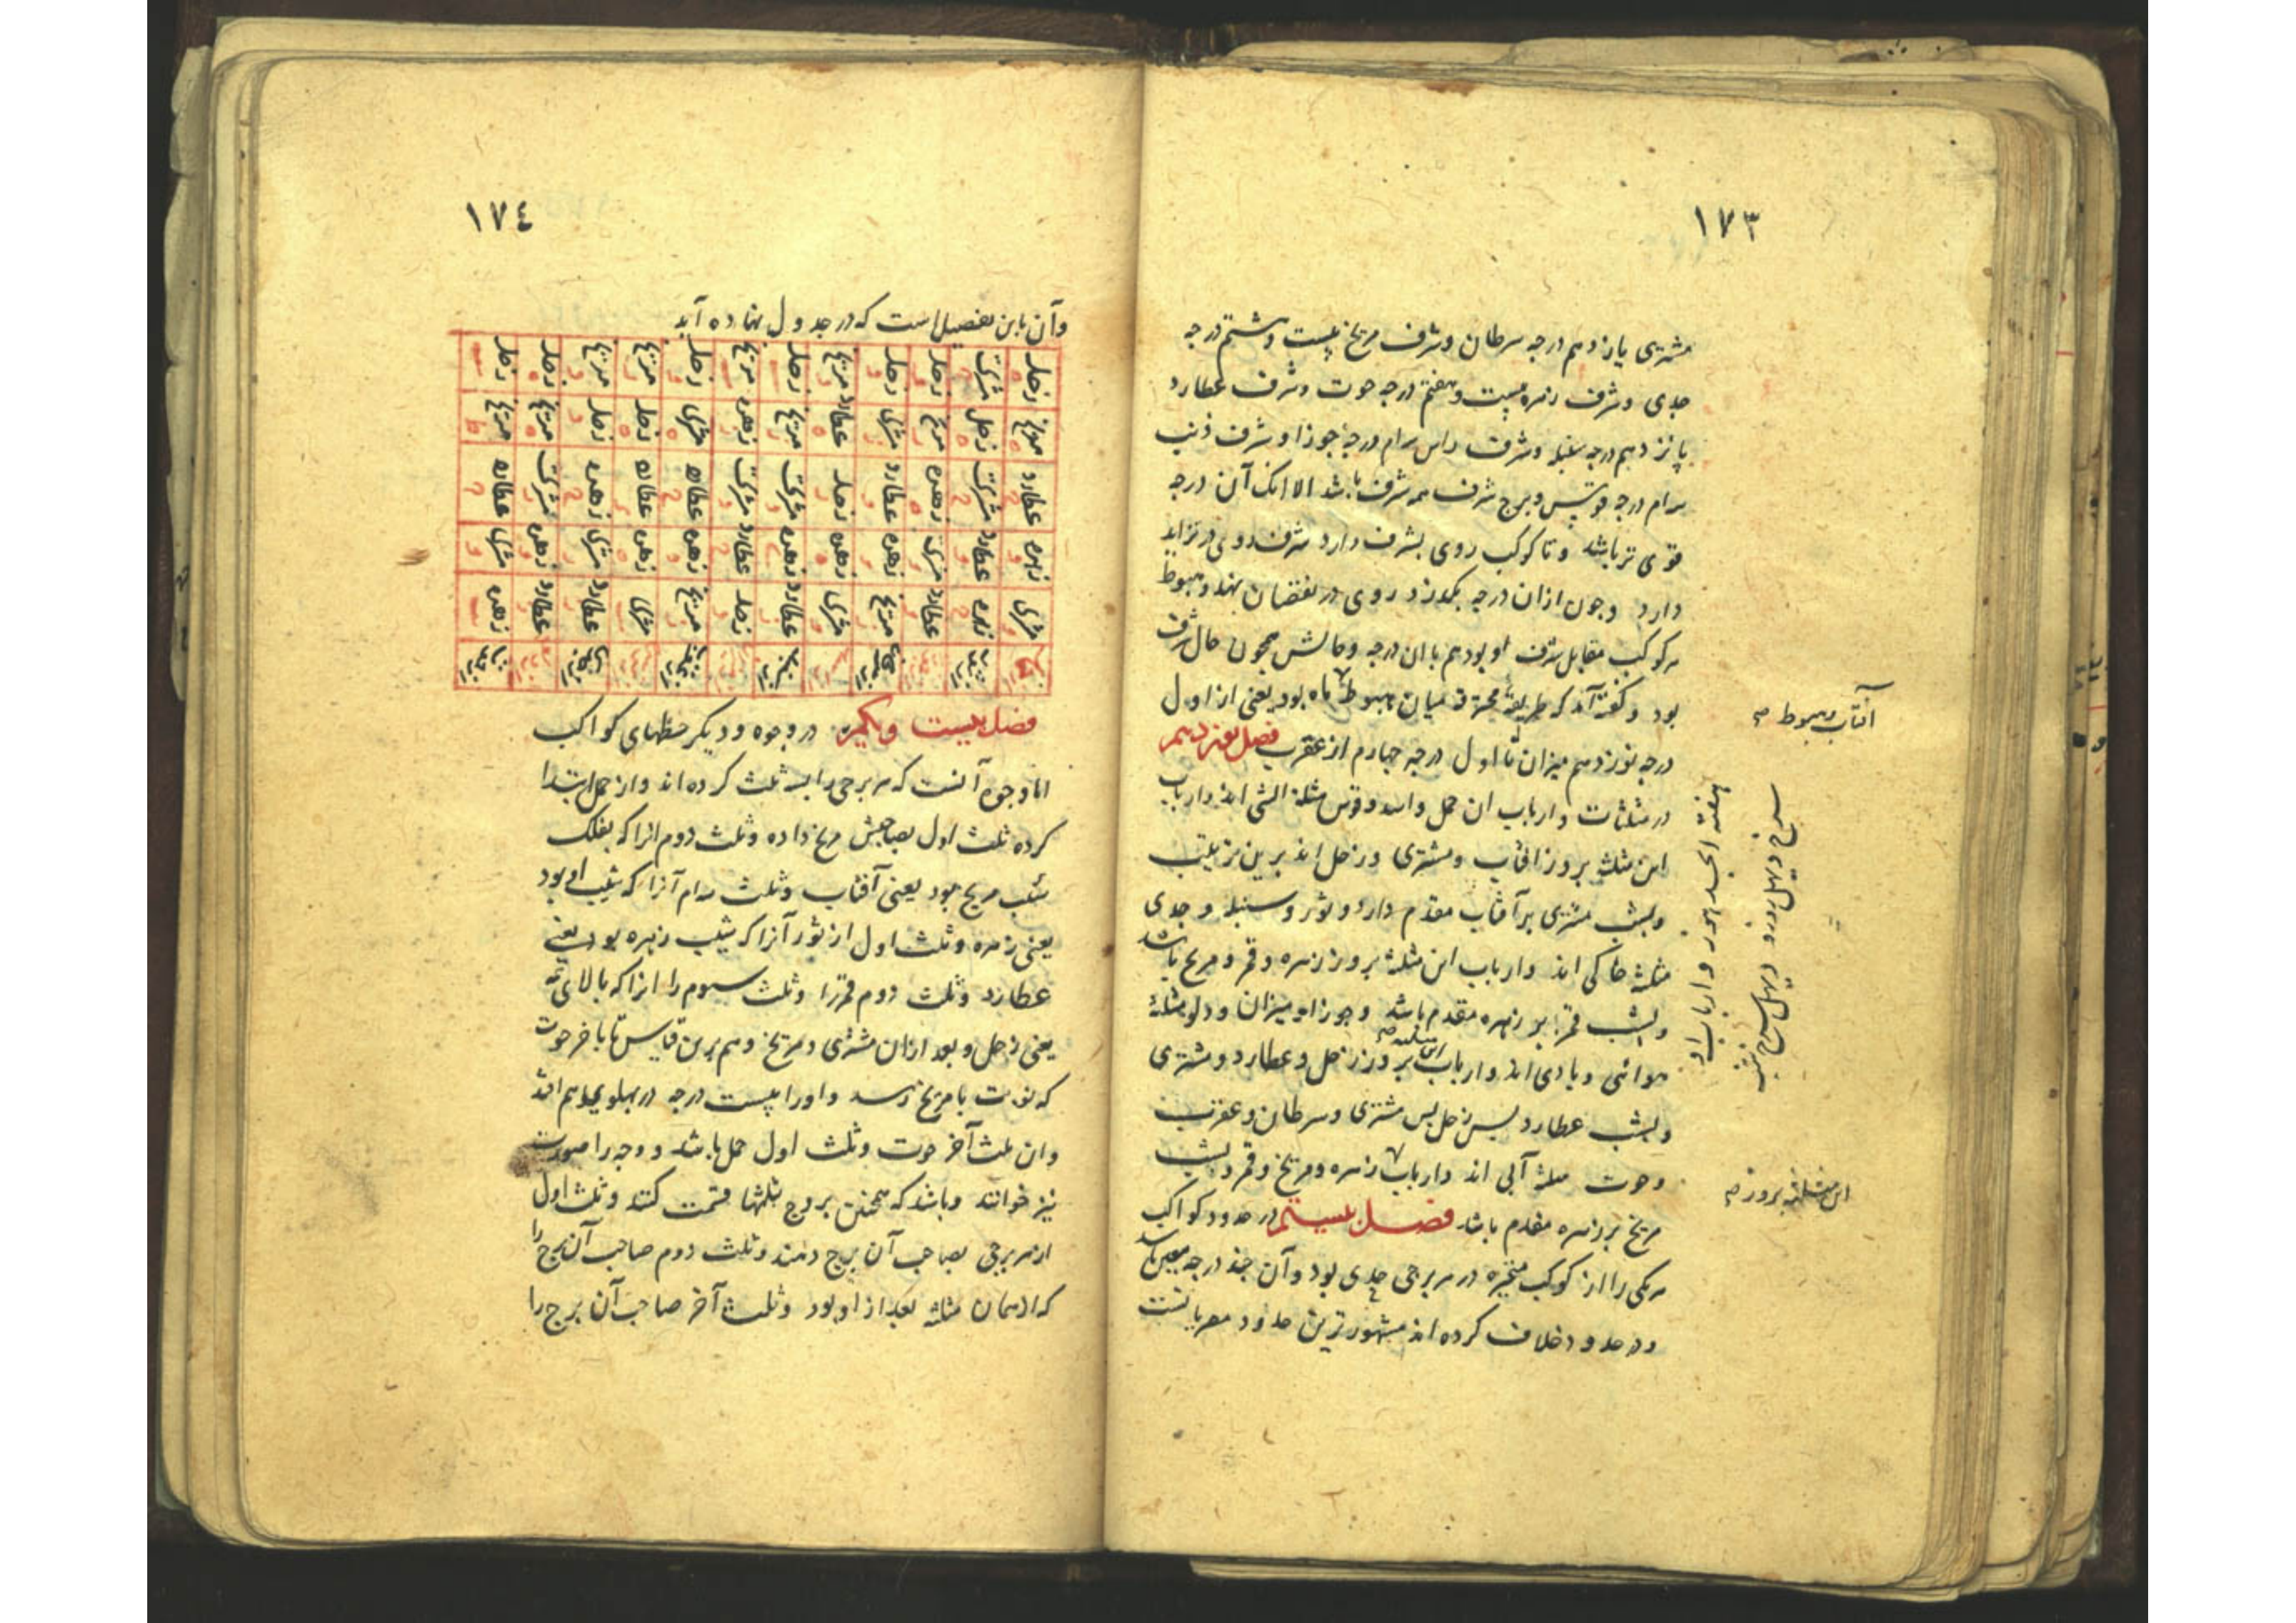 ١٧٣
مشتری یازدهم درجه سرطان وشرف مریخ بیست وهشتم درجه
جدی وشرف زهره بیست وهفتم درجه حوت وشرف عطارد
پانزدهم درجه سنبله وشرف راس سوم درجهٔ جوزا وشرف ذنب
سوم درجه قوس وبرج شرف همه شرف باشد الا انک آن درجه
قوی تر باشد وتا کوکب روی بشرف دارد شرف روی در تزاید
دارد وچون ازان درجه بگذرد روی در نقصان نهد وهبوط
هر کوکب مقابل شرف او بود هم بان درجه وحالش همچون حال شرف
بود وگفته آند که طریقهٔ محترقه میان هبوط ماه بود یعنی از اول
درجه نوزدهم میزان تا اول درجه چهارم از عقرب فصل نوزدهم
در مثلثات وارباب ان حمل واسد وقوس مثلثه اتشی اند وارباب
این مثلثه بروز افتاب ومشتری وزحل اند برین ترتیب
وبشب مشتری بر آفتاب مقدم دارد وثور وسنبله وجدی
مثلثه خاکی اند وارباب این مثلثه بروز زهره وقمر ومریخ باشد
وبشب قمر بر زهره مقدم باشد وجوزا ومیزان ودلو مثلثهٔ
هوائی وبادی اند وارباب این مثلثه بروز زحل وعطارد ومشتری
وبشب عطارد پس زحل پس مشتری وسرطان وعقرب
وحوت مثلثه آبی اند وارباب زهره ومریخ وقمر وبشب
مریخ بر زهره مقدم باشد فصل بیستم در حدود کواکب
هر یکی را از کوکب متحیره در هر برجی حدی بود وآن چند درجه معین باشد
ودر حدود خلاف کرده اند مشهورترین حدود مصریانست
آفتاب وهبوط صح
این مثلثه بروز صح
١٧٤
وآن باین تفصیل است که در جدول نهاده آید
زحل مشتری زحل زحل مریخ زحل مریخ زحل مریخ مریخ زحل زحل
مریخ زحل مریخ مشتری عطارد مریخ زهره مشتری زحل زحل مریخ مریخ
عطارد مشتری زهره عطارد زحل مشتری مشتری عطارد عطارد زهره مشتری عطارد
زهره عطارد مشتری زهره زهره زهره عطارد زهره زهره مشتری زهره مشتری
مشتری زهره عطارد مریخ مشتری عطارد زحل مریخ مشتری عطارد عطارد زهره
فصل بیست ویکم در وجوه ودیگر حظهای کواکب
اما وجوه آنست که هر برجی را بسه ثلث کرده اند واز حمل ابتدا
کرده ثلث اول بصاحبش مریخ داده وثلث دوم انرا که بفلک
شیب مریخ بود یعنی آفتاب وثلث سوم آنرا که بشیب او بود
یعنی زهره وثلث اول از ثور آنرا که بشیب زهره بود یعنی
عطارد وثلث دوم قمر را وثلث سوم را انرا که بالای همه
یعنی زحل وبعد ازان مشتری ومریخ وهم برین قیاس تا باخر حوت
که نوبت با مریخ رسد واورا بیست درجه در پهلوی هم افتد
وان ثلث آخر حوت وثلث اول حمل باشد ووجه را صورت
نیز خوانند وباشد که همچنین بروج بثلثها قسمت کنند وثلث اول
از هر برجی بصاحب آن برج دهند وثلث دوم صاحب آن برج را
که ازهمان مثلثه بعد از او بود وثلث آخر صاحب آن برج را